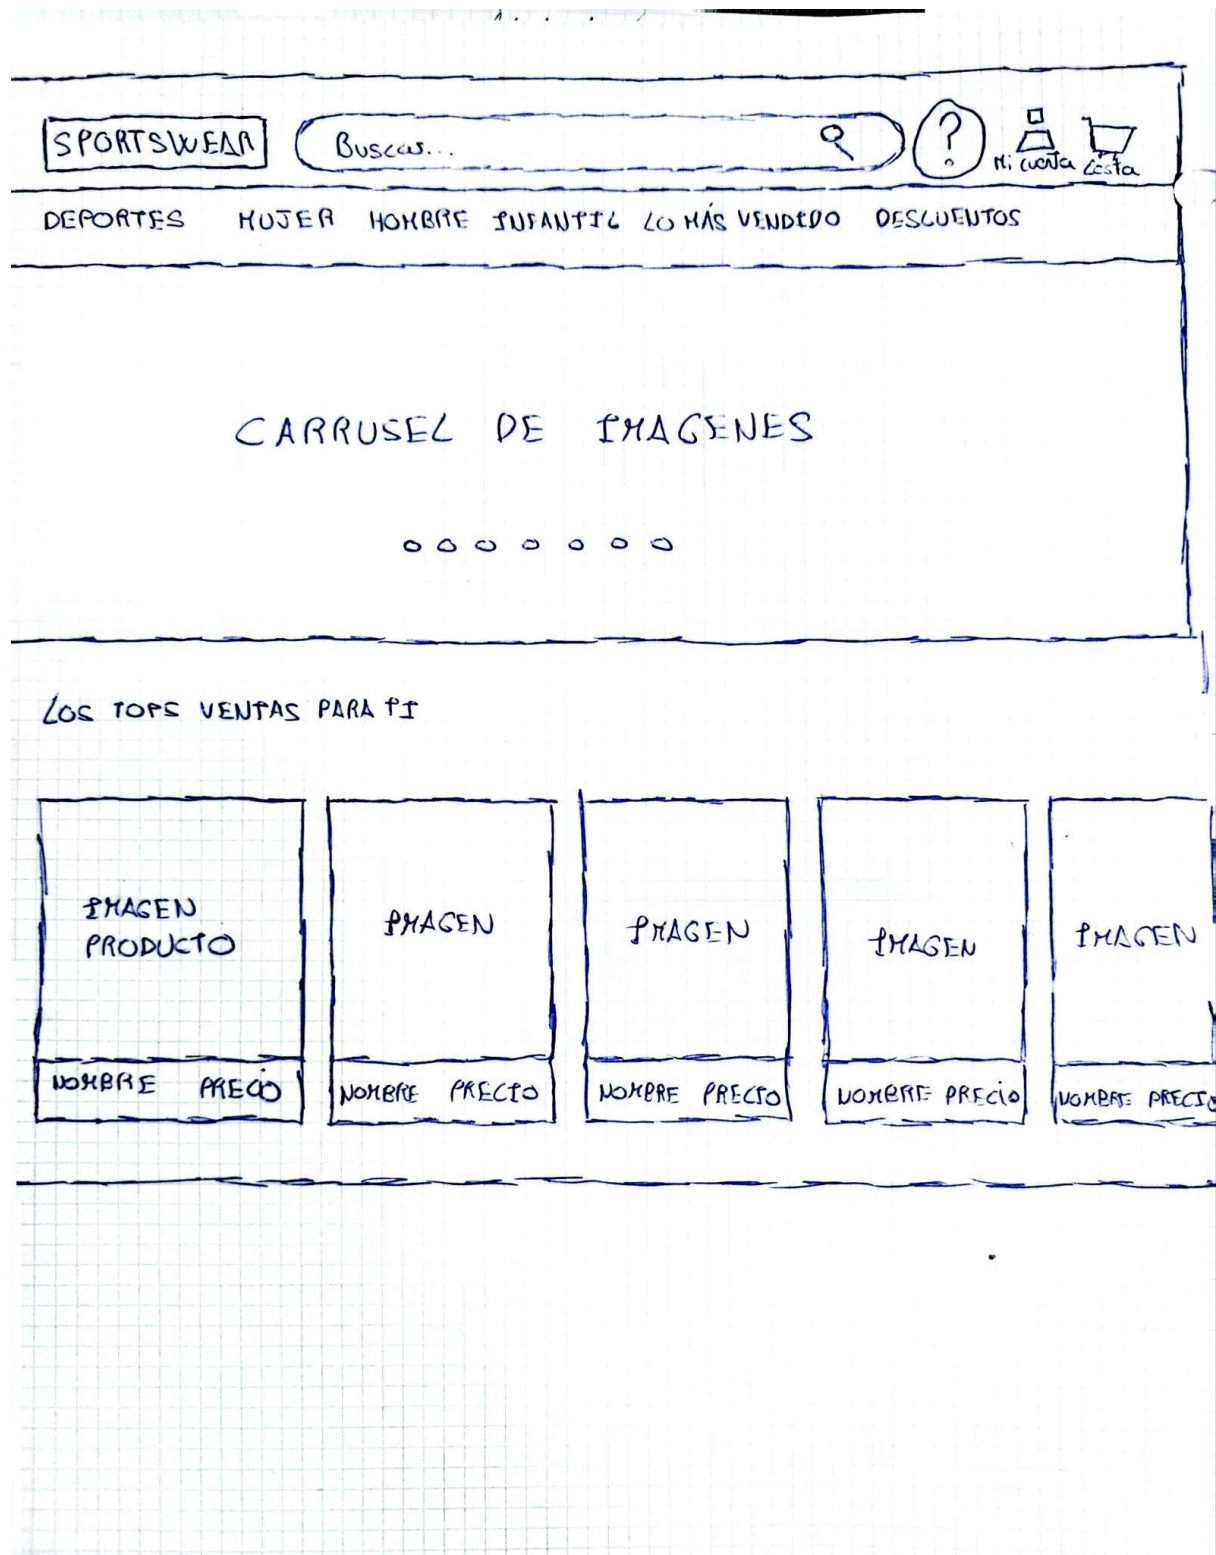 SPORTSWEAR Buscar... ? Mi cuenta Cesta
DEPORTES MUJER HOMBRE INFANTIL LO MÁS VENDIDO DESCUENTOS
CARRUSEL DE IMAGENES
LOS TOPS VENTAS PARA TI
IMAGEN
PRODUCTO
IMAGEN
IMAGEN
IMAGEN
IMAGEN
NOMBRE PRECIO
NOMBRE PRECIO
NOMBRE PRECIO
NOMBRE PRECIO
NOMBRE PRECIO